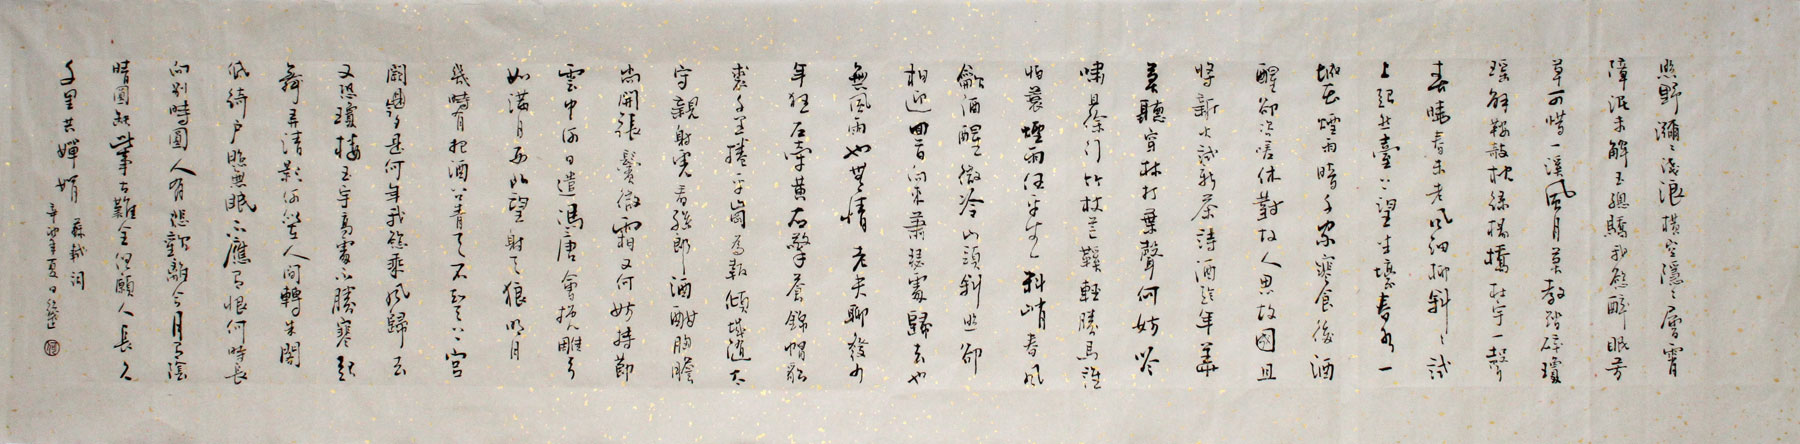 照野瀰瀰淺浪橫空隱隱層霄
障泥未解玉驄驕我欲醉眠芳
草可惜一溪風月莫教踏碎瓊
瑤解鞍欹枕綠楊橋杜宇一聲
春曉春未老風細柳斜斜試
上超然臺上望半壕春水一
城花煙雨暗千家寒食後酒
醒卻咨嗟休對故人思故國且
將新火試新茶詩酒趁年華
莫聽穿林打葉聲何妨吟
嘯且徐行竹杖芒鞋輕勝馬誰
怕蓑煙雨任平生料峭春風
龡酒醒微冷山頭斜照卻
相迎回首向來蕭瑟處歸去也
無風雨也無情 老夫聊發少
年狂左牽黃右擎蒼錦帽貂
裘千里捲平崗為報傾城隨太
守親射虎看孫郎酒酣胸膽
尚開張鬢微霜又何妨持節
雲中何日遣馮唐會挽雕弓
如滿月西北望射天狼明月
幾時有把酒問青天不知天上宮
闕今夕是何年我欲乘風歸去
又恐瓊樓玉宇高處不勝寒起
舞弄清影何似在人間轉朱閣
低綺戶照無眠不應有恨何時長
向別時圓人有悲歡離合月有陰
晴圓缺此事古難全但願人長久
千里共嬋娟 蘇軾詞
年夏日